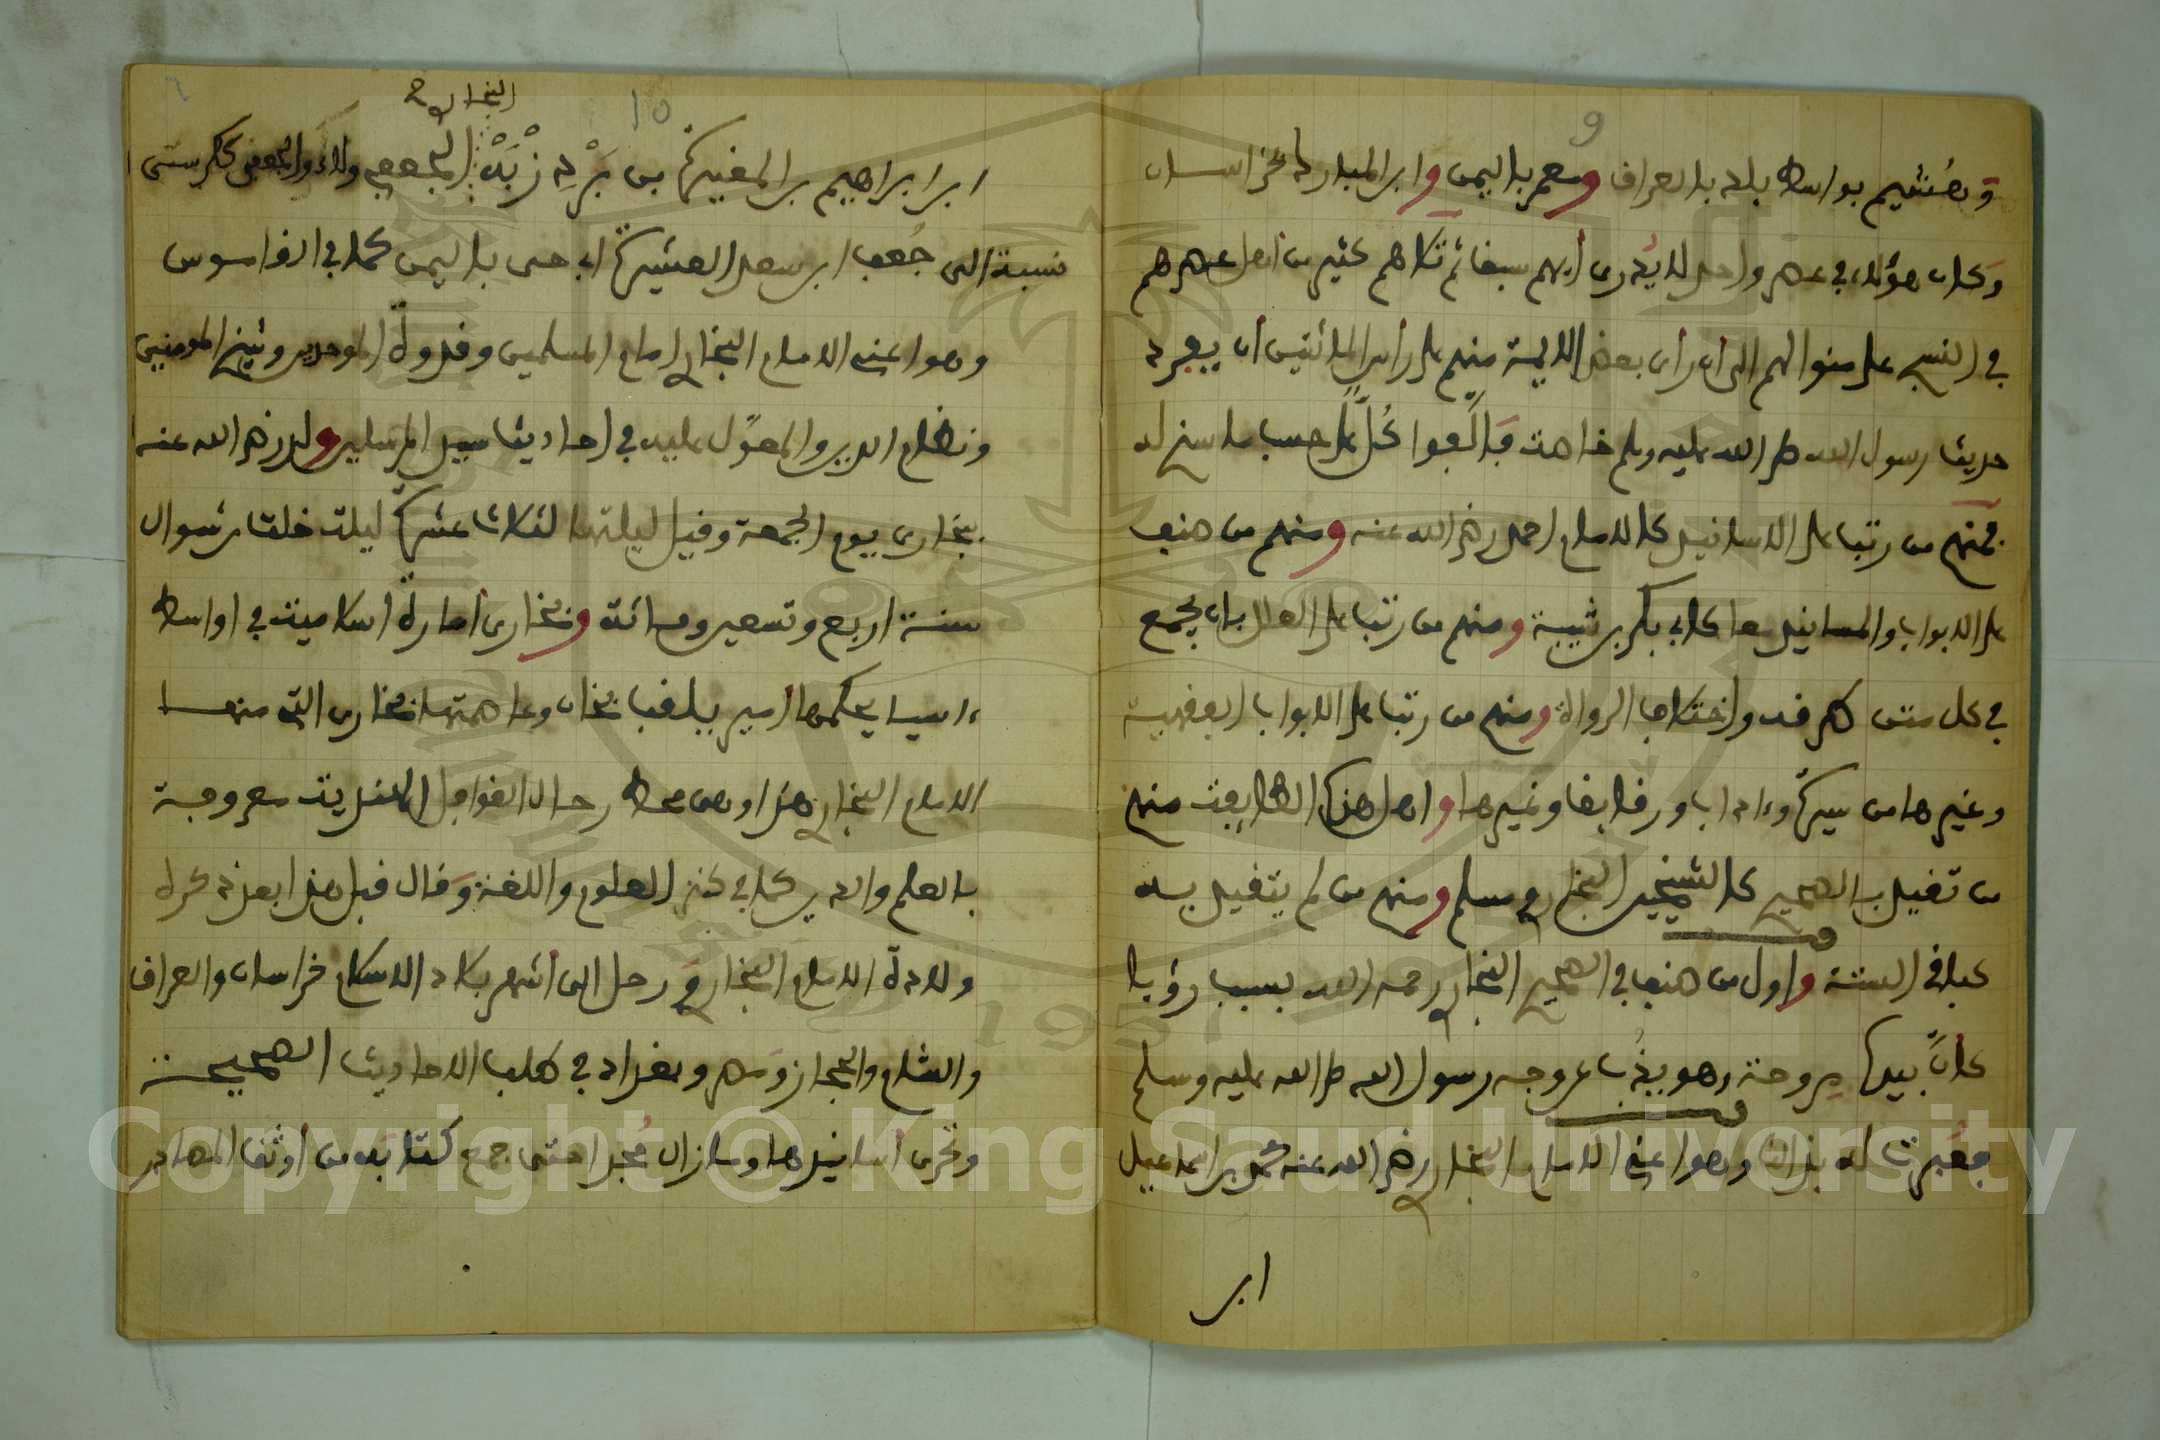 9
وهُشيم بواسط بلد بالعراق ومعمر باليمن وابن المبارك بخراسان
وكان هؤلاء في عصر واحد لا يُدرى أيهم سبق ثم تلاهم كثير من أهل عصرهم
في النسج على منوالهم الى ان رأى بعض الايمة منهم على رأس المائتين أن يفرد
حديث رسول الله صلى الله عليه وسلم خاصة فألّفوا كلٌّ على حسب ما سنح له
فمنهم من رتب على الاسانيد كالامام احمد رضي الله عنه ومنهم من صنف
على الابواب والمسانيد معا كابي بكر بن شيبة ومنهم من رتب على العلل بان يجمع
في كل متن طرقه واختلاف الرواة ومنهم من رتب على الابواب الفقهية
وغيرها من سيرة وءاداب ورقايق وغيرها واهل هذه الطريقة منهم
من تقيد بالصحيح كالشيخين البخاري ومسلم ومنهم من لم يتقيد به
كباقي الستة واول من صنف في الصحيح البخاري رحمه الله بسبب رؤيا
كأنّ بيده مروحة وهو يذُب عن وجه رسول الله صلى الله عليه وسلم
فعُبّرت له بذلك وهو اعني الامام البخاري رضي الله عنه محمد بن اسماعيل
ابن
10
البخاري
ابن ابراهيم بن المغيرة بن بَرْدِزْبَهْ الجعفي ولاء والجعفي ككرسى
نسبة الى جُعف ابن سعد العشيرة ابي حى باليمن كما في القاموس
وهو اعني الامام البخاري امام المسلمين وقدوة الموحدين وشيخ المومنين
ونظام الدين والمعوّل عليه في احاديث سيد المرسلين ولد رضي الله عنه
ببخارى يوم الجمعة وقيل ليلتها لثلاث عشرة ليلة خلت من شوال
سنة اربع وتسعين ومائة وبخارى أمارة اسلامية في اواسط
ءاسيا يحكمها أمير يلقب بخان وعاصمتها بخارى التى منها
الامام البخاري هذا وهى محط رحال القوافل معروفة
بالعلم والدين كما في كنز العلوم واللغة وقال قبل هذا بعد ذكره
ولادة الامام البخاري ورحل الى أشهر بلاد الاسلام خراسان والعراق
والشام والحجاز ومصر وبغداد في طلب الاحاديث الصحيحة
وتحرى أسانيدها وما زال مُجدا حتى جمع كتابه من أوثق المصادر
Copyright © King Saud University
1957